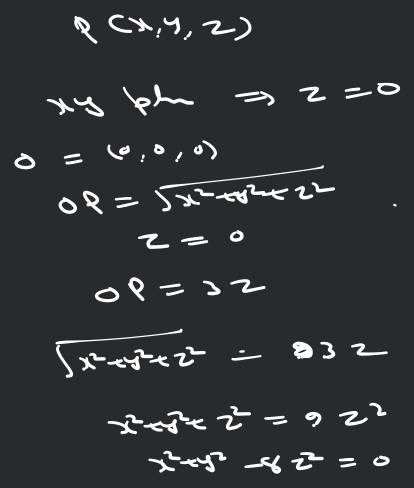 P (x, y, z)
xy pln ⇒ z = 0
O = (0, 0, 0)
OP = √x²+y²+z²
z = 0
OP = 3z
√x²+y²+z² = 3z
x²+y²+z² = 9z²
x²+y² -8z² = 0